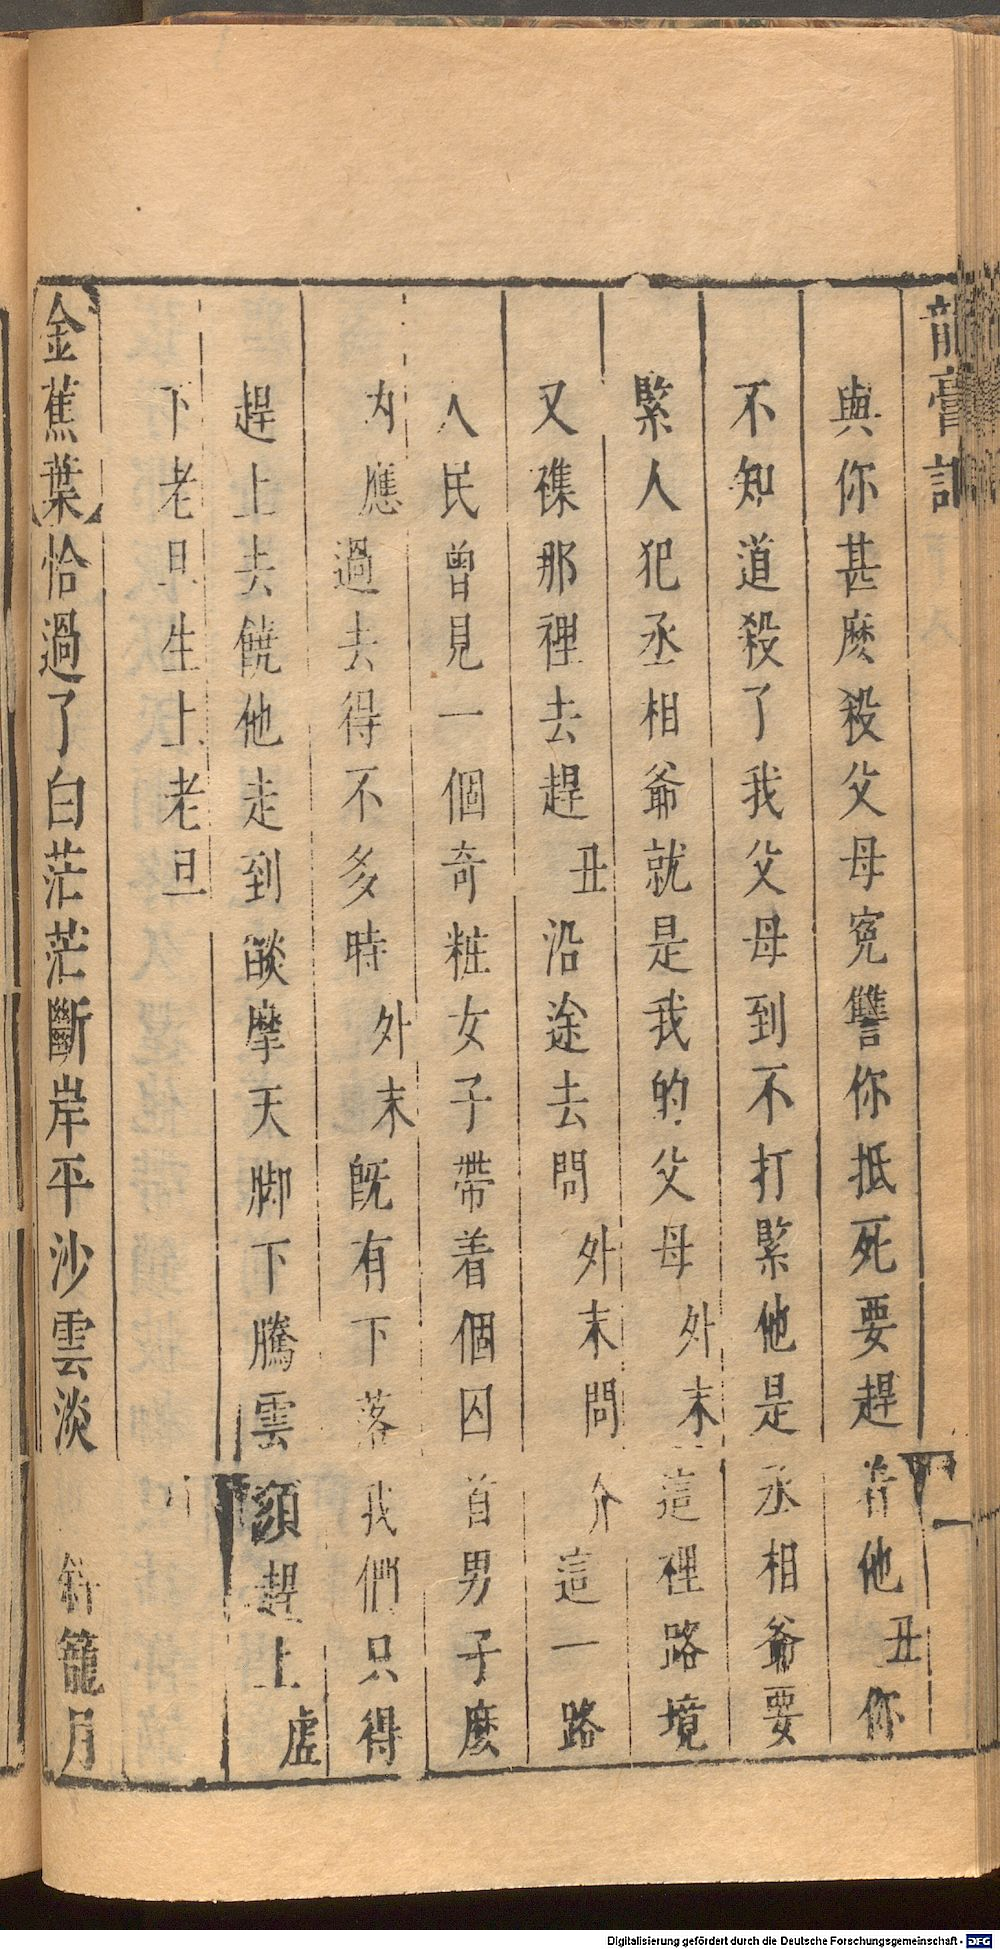 龍膏記
與你甚麼殺父母寃讐你抵死要趕着他丑你
不知道殺了我父母到不打緊他是丞相爺要
緊人犯丞相爺就是我的父母外末這裡路境
又襍那裡去趕丑沿途去問外末問介這一路
人民曾見一個奇粧女子帶着個囚首男子麼
內應過去得不多時外末旣有下落我們只得
趕上去饒他走到燄摩天脚下騰雲須趕上虛
下老旦生上老旦
金蕉葉恰過了白茫茫斷岸平沙雲淡籠月
Digitalisierung gefördert durch die Deutsche Forschungsgemeinschaft - DFG